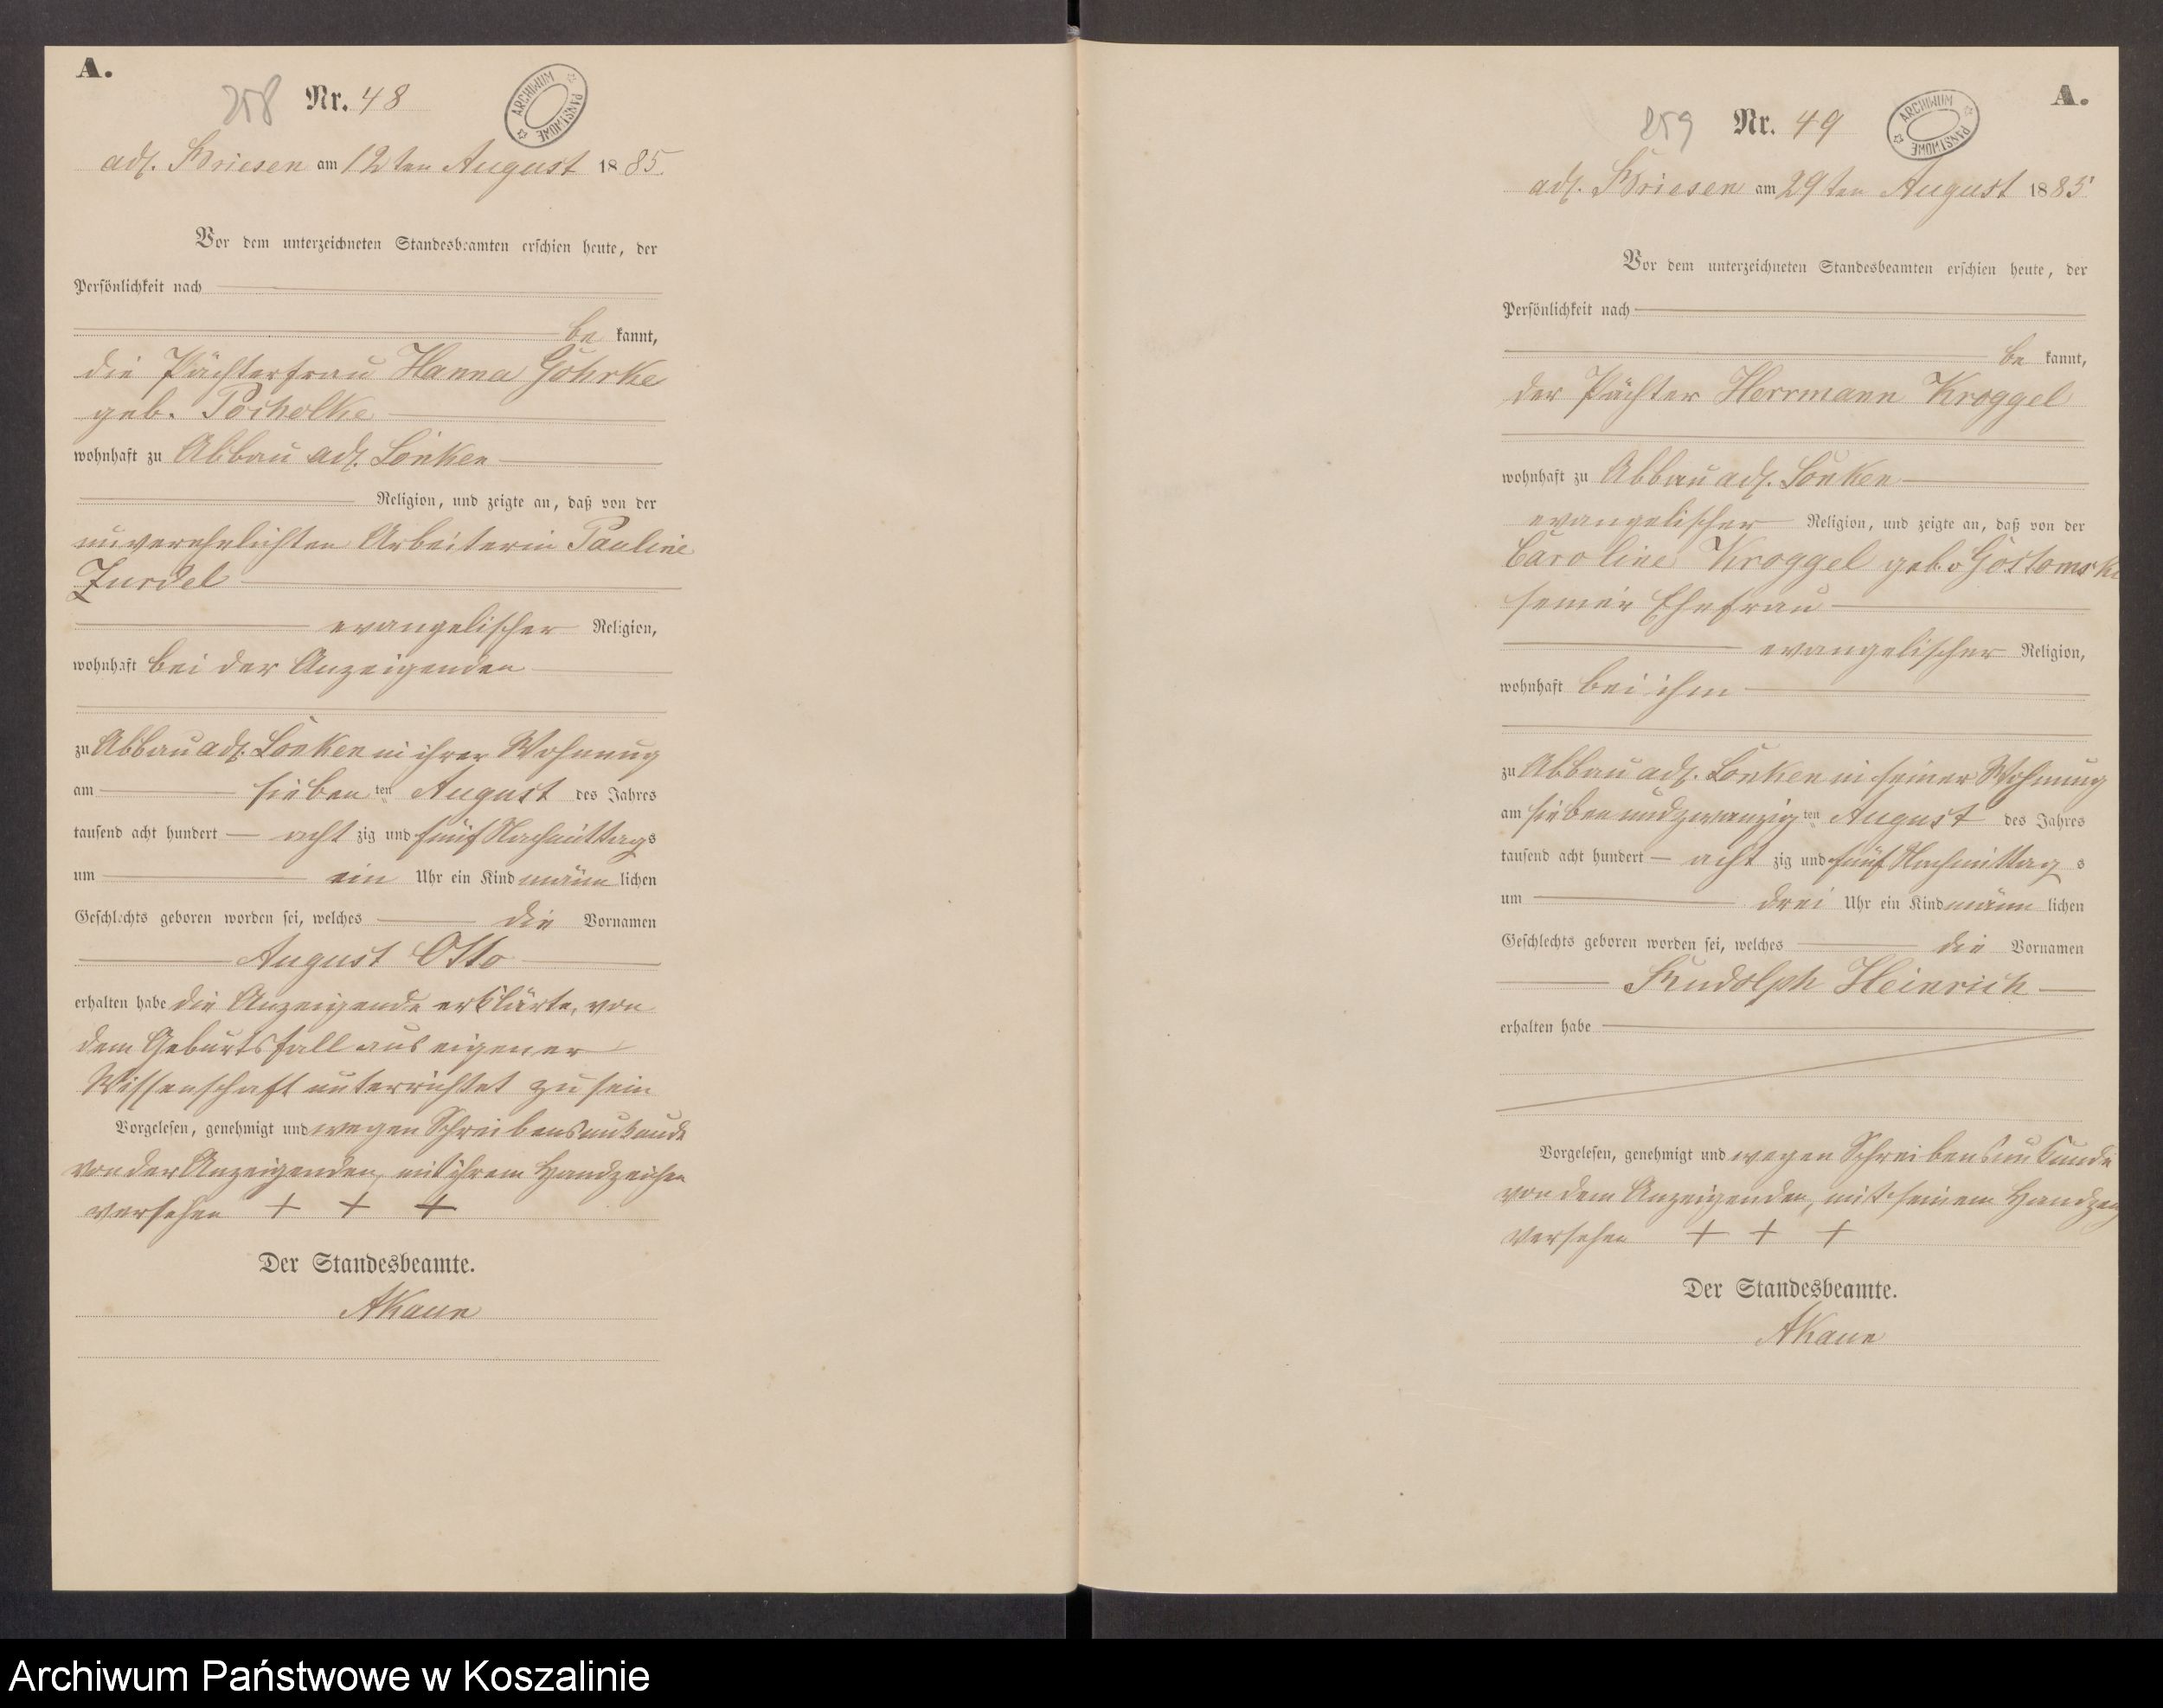 A.
258 Nr. 48
ARCHIWUM PAŃSTWOWE
adl. Briesen am 12ten August 1885.
Vor dem unterzeichneten Standesbeamten erschien heute, der
Persönlichkeit nach
be kannt,
die Pächterfrau Hanna Göhrke
geb.
wohnhaft zu Abbau adl. Lonken
Religion, und zeigte an, daß von der
unverehelichten Arbeiterin Pauline
evangelischer Religion,
wohnhaft bei der Anzeigenden
zu Abbau adl. Lonken in ihrer Wohnung
am sieben ten August des Jahres
tausend acht hundert acht zig und fünf Nachmittags
um ein Uhr ein Kind männ lichen
Geschlechts geboren worden sei, welches die Vornamen
August Otto
erhalten habe die Anzeigende erklärte, von
dem Geburtsfall aus eigener
Wissenschaft unterrichtet zu sein
Vorgelesen, genehmigt und wegen Schreibensunkunde
von der Anzeigenden, mit ihrem Handzeichen
versehen + + +
Der Standesbeamte.
AKaun
A.
259 Nr. 49
ARCHIWUM PAŃSTWOWE
adl. Briesen am 29ten August 1885
Vor dem unterzeichneten Standesbeamten erschien heute, der
Persönlichkeit nach
be kannt,
der Pächter Herrmann Kroggel
wohnhaft zu Abbau adl. Lonken
evangelischer Religion, und zeigte an, daß von der
Caroline Kroggel geb. Gostomske
seiner Ehefrau
evangelischer Religion,
wohnhaft bei ihm
zu Abbau adl. Lonken in seiner Wohnung
am sieben und zwanzig ten August des Jahres
tausend acht hundert acht zig und fünf Nachmittag s
um drei Uhr ein Kind männ lichen
Geschlechts geboren worden sei, welches die Vornamen
Rudolph Heinrich
erhalten habe
Vorgelesen, genehmigt und wegen Schreibensunkunde
von dem Anzeigenden, mit seinem
versehen + + +
Der Standesbeamte.
AKaun
Archiwum Państwowe w Koszalinie